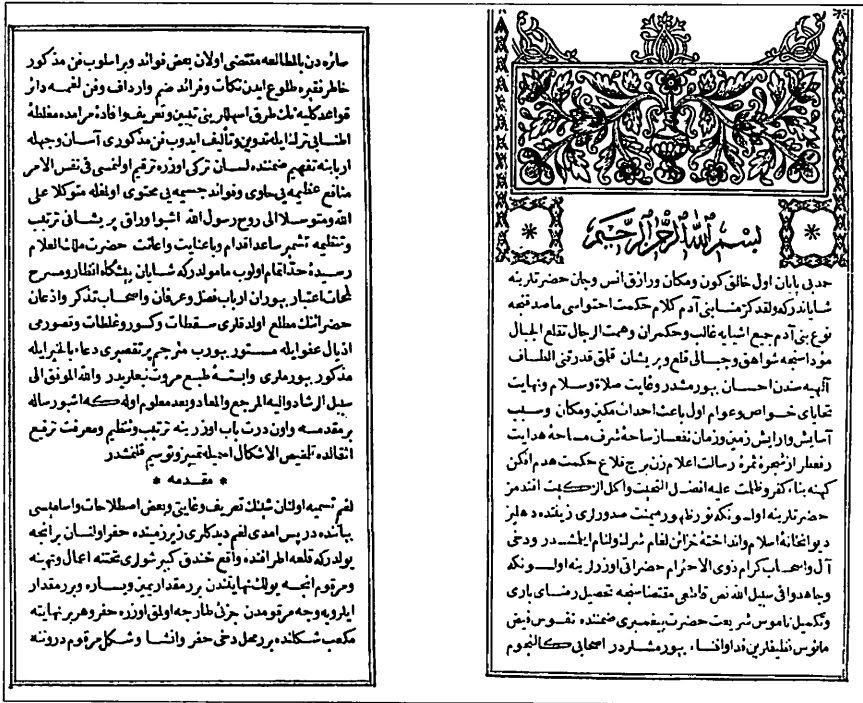 بسم الله الرحمن الرحيم
حمد بی پایان اول خالق کون ومکان ورازق انس وجان حضرتلرینه
شایاندرکه ولقد کرمنا بنی آدم کلام حکمت احتواسی ماصدقنجه
نوع بنی آدم جمیع اشیایه غالب وحکمران وهمت الرجال تقلع الجبال
مؤداسنجه شواهق وجبالی قلع وپریشان قیلمق قدرتنی الطاف
آلهیه سندن احسان بیورمشدر وغایت صلاة وسلام ونهایت
تحایای خواص وعوام اول باعث احداث مکین ومکان وسبب
آسایش وآرایش زمین وزمان ساحهٔ شرف مساحهٔ هدایت
شجرهٔ ثمرهٔ رسالت اعلام زن برج قلاع حکمت هدم افکن
کهنه بناء کفر وظلمت علیه افضل التحیت واکمل افندمز
حضرتلرینه اولسونکه نور ظهور میمنت صدورلری زینت ده دهلیز
دیوانخانهٔ اسلام وانداختهٔ خزائن لغام شرك ایلمشدر ودخی
آل واصحاب کرام ذوی الاحترام حضراتی اوزرلرینه اولسونکه
وجاهدوا فی سبیل الله نص قاطعی مقتضاسنجه تحصیل رضای باری
وتکمیل ناموس شریعت حضرت پیغمبری ضمننده نفوس فیض
مأنوس نظیفلرین فدا وافنا بیورمشلردر اصحابی کالنجوم
سائره دن بالمطالعه مقتضی اولان بعض فوائد وبر اسلوب فن مذکور
خاطر فقیره طلوع ایدن نکات وفرائد ضم وارداف وفن لغمه دائر
قواعد کلیه نك طرق اسهللرینی تبیین وتعریف وافادهٔ مرامده مغلطهٔ
اطنابی ترك ایله تدوین وتألیف ایدوب فن مذکوری آسان وجهله
اربابنه تفهیم ضمننده لسان ترکی اوزره ترقیم اولنمسی فی نفس الامر
منافع عظیمه یی حاوی وفوائد جسیمه یی محتوی اولمغله متوکلا علی
الله ومتوسلا الی روح رسول الله اشبو اوراق پریشانی ترتیب
وتنظیمه تشمیر ساعد اقدام وبا عنایت واعانت حضرت ملك العلام
رسیدهٔ حد اتمام اولوب مأمولدرکه شایان پیشگاه انظار ومسرح
لمحات اعتبار بیوران ارباب فضل وعرفان واصحاب تذکر واذعان
حضراتنك مطلع اولدقلری سقطات وکسور وغلطات وقصورمی
اذیال عفو ایله مستور بیوروب مترجم پر تقصیری دعاء بالخیر ایله
مذکور بیورملری وابستهٔ طبع مروت والله الموفق الی
سبیل الرشاد والیه المرجع والمعاد وبعد معلوم اوله که اشبو رساله
بر مقدمه واون درت باب اوزرینه ترتیب وتنظیم ومعرفت ترفیع
اثقالده تلخیص الاشکال اسمیله تمییز وتوسیم قلنمشدر
* مقدمه *
لغم تسمیه اولنان شیئك تعریف وغایتی وبعض اصطلاحات واسامیسی
بیاننده در پس امدی لغم دیدکلری زیر زمینده حفر اولنان بر انجه
یولدرکه قلعه اطرافنده واقع خندق کبیر شولری تحتنه اعمال وتهیئه
ومرقوم انجه یولك نهایتندن بر مقدار یمین ویساره وبر مقدار
ایلرویه وجه مرقومدن جزئی طارجه اولمق اوزره حفر وهر بر نهایته
مکعب شکلنده برر محل دخی حفر وانشا وشکل مرقوم دروننه